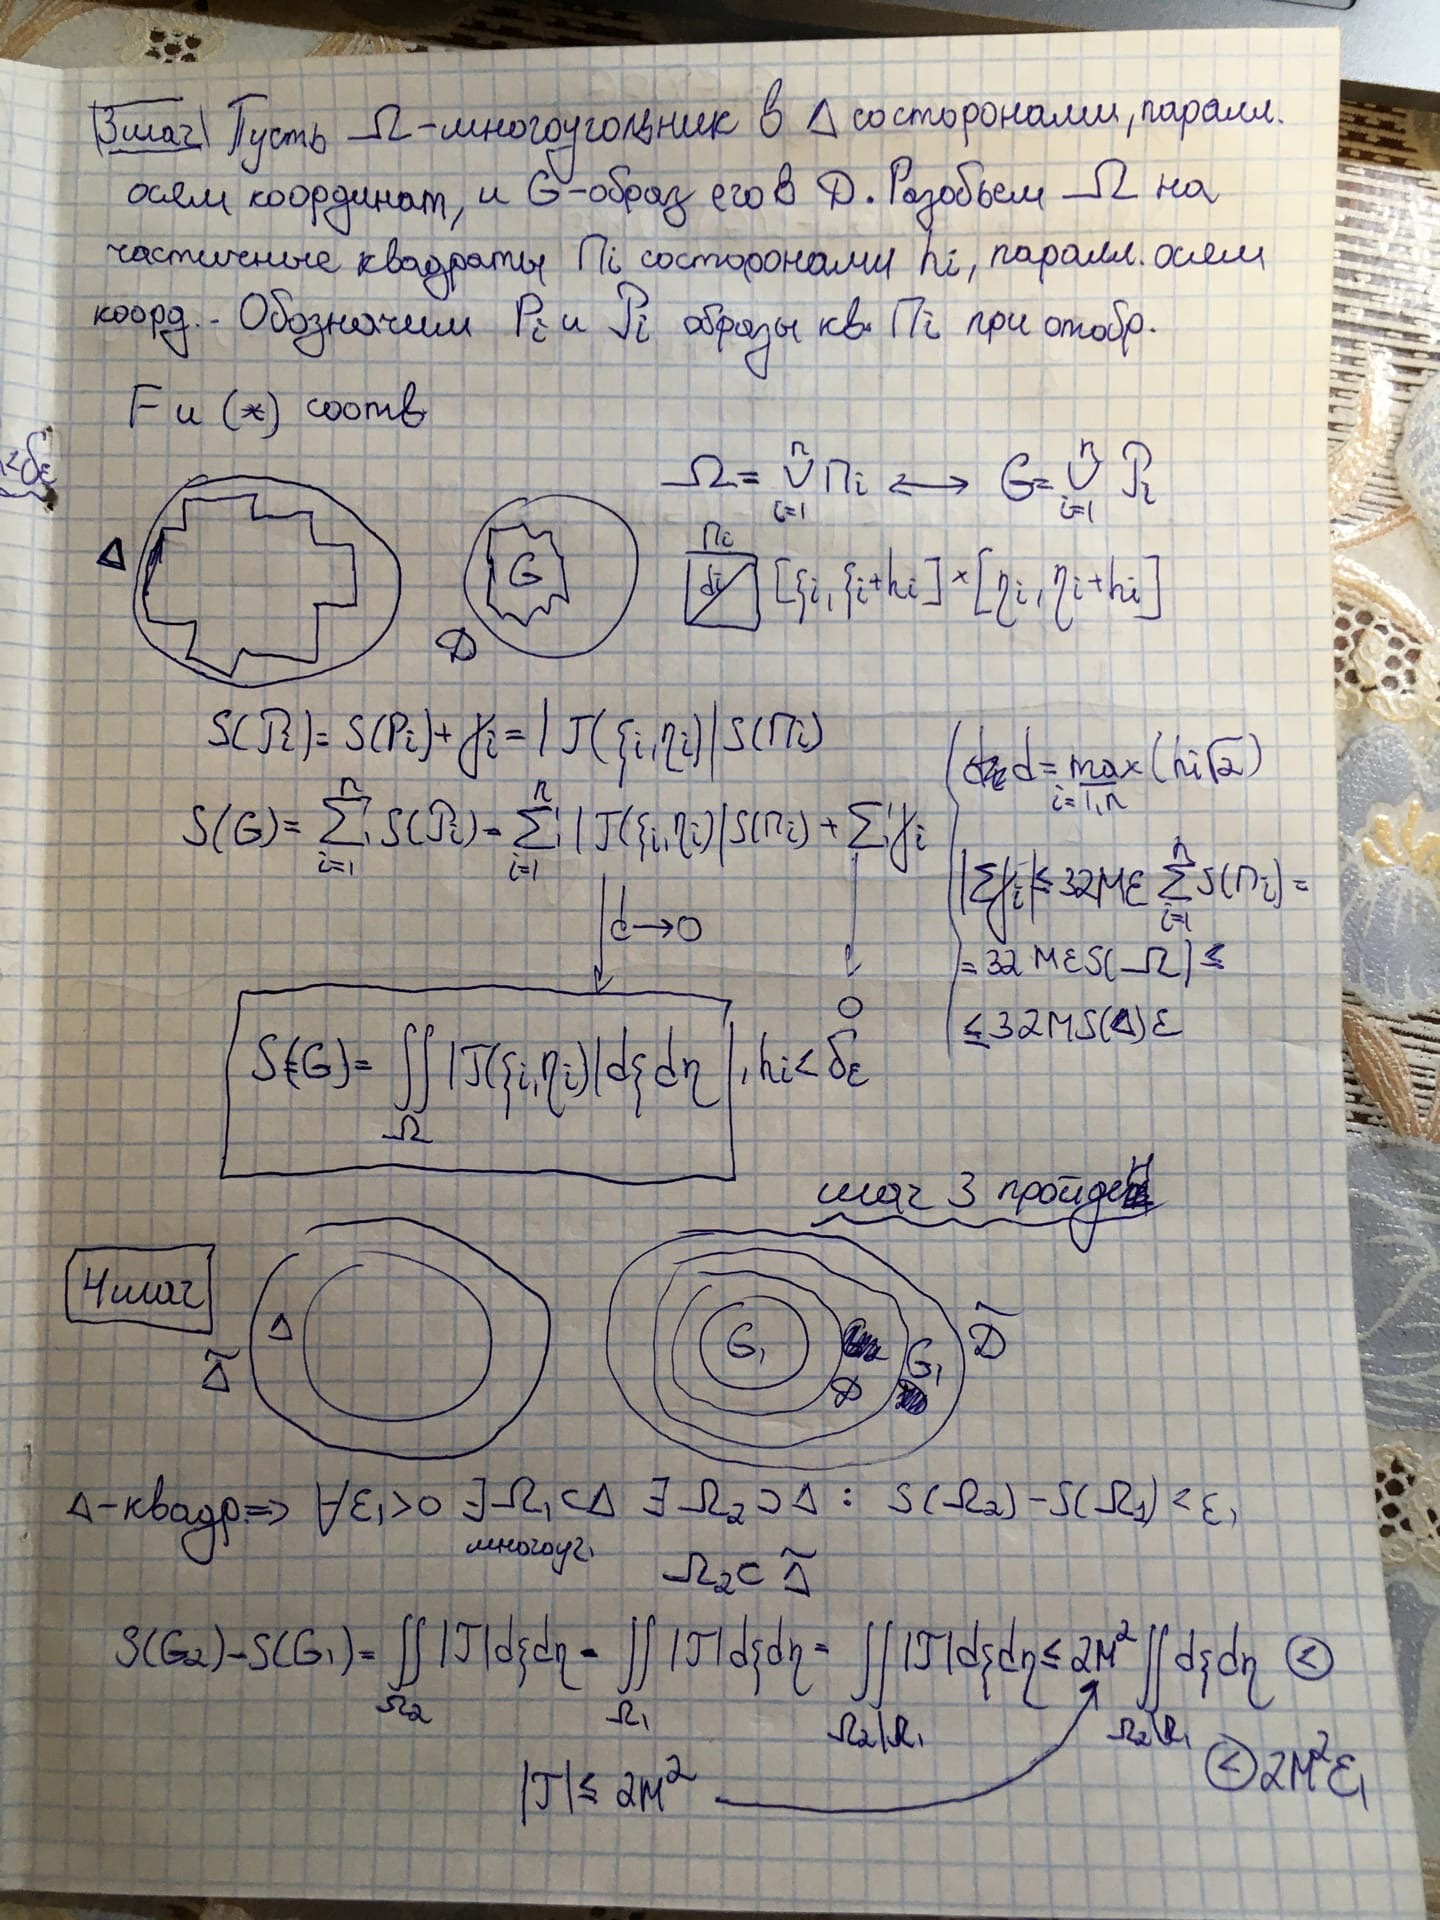 3 шаг Пусть Ω-многоугольник в Δ со сторонами, паралл.
осям координат, и G-образ его в D. Разобьем Ω на
частичные квадраты Πi со сторонами hi, паралл. осям
коорд.. Обозначим Pi и 𝒫i образы кв. Πi при отобр.
F и (*) соотв
<δε
Ω = ∪ⁿᵢ₌₁ Πi ⟷ G = ∪ⁿᵢ₌₁ 𝒫i
Δ G D
Πi di [ξi, ξi+hi] × [ηi, ηi+hi]
S(𝒫i) = S(Pi) + γi = |J(ξi, ηi)| S(Πi)
d = max (hi√2) i=1,n
S(G) = Σⁿᵢ₌₁ S(𝒫i) = Σⁿᵢ₌₁ |J(ξi, ηi)| S(Πi) + Σ γi
|Σγi| ≤ 32Mε Σⁿᵢ₌₁ S(Πi) =
d→0
= 32MεS(Ω) ≤
0
≤ 32MS(Δ)ε
S(G) = ∬Ω |J(ξi, ηi)| dξ dη, hi < δε
шаг 3 пройден
4 шаг
Δ Δ̃ G₁ D G₁ D̃
Δ-квадр. ⇒ ∀ε₁>0 ∃Ω₁⊂Δ ∃Ω₂⊃Δ : S(Ω₂) - S(Ω₁) < ε₁
многоуг.
Ω₂⊂Δ̃
S(G₂) - S(G₁) = ∬Ω₂ |J|dξdη - ∬Ω₁ |J|dξdη = ∬Ω₂\Ω₁ |J|dξdη ≤ 2M² ∬Ω₂\Ω₁ dξdη <
|J| ≤ 2M²
< 2M²ε₁